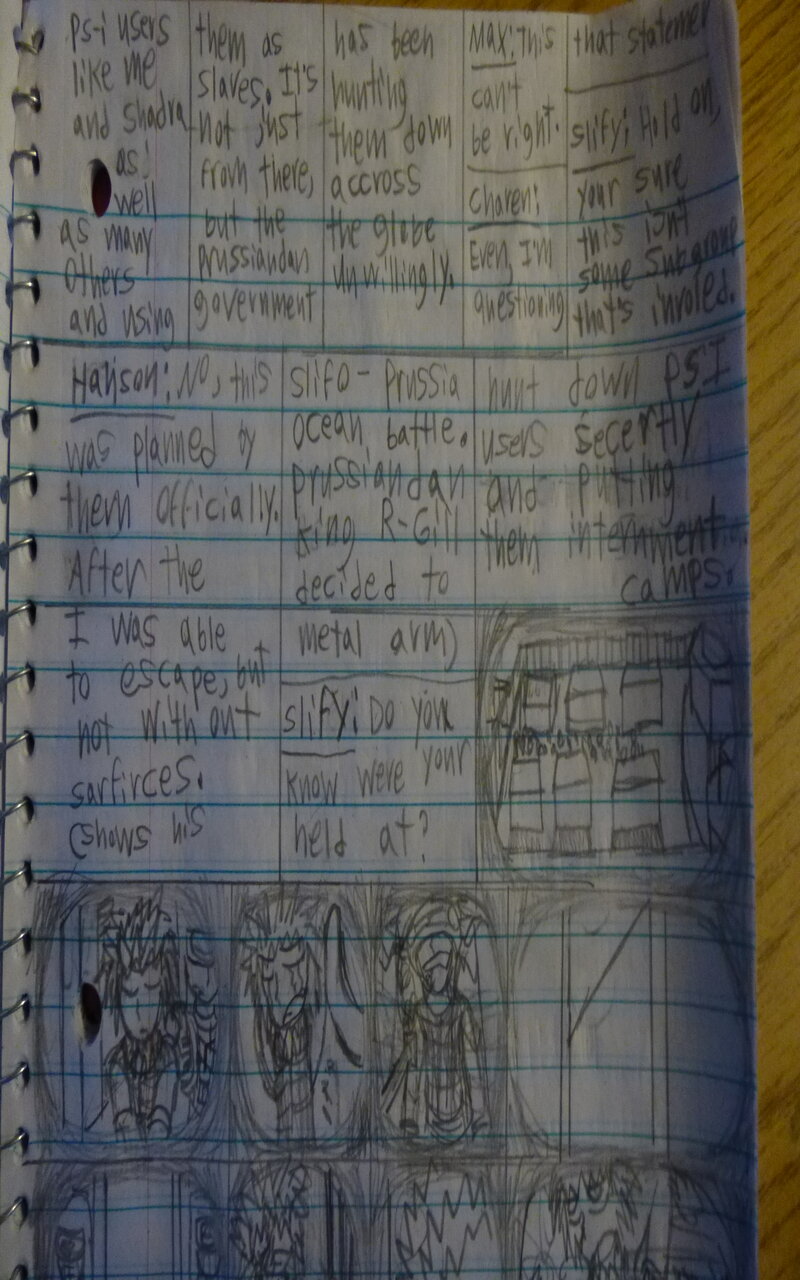 Ps-i users
like me
and shadra
as
well
as many
others
and using
them as
slaves. It's
not just
from there,
but the
prussiandan
government
has been
hunting
them down
accross
the globe
unwillingly.
Max: This
can't
be right.
Charen:
Even, I'm
questioning
that statemer
slify: Hold on,
your sure
this isn't
some subgroup
that's inroled.
Hanson: No, this
was planned by
them officially.
After the
slifo-prussia
ocean battle.
prussiandan
king R-Gill
decided to
hunt down PSI
users secertly
and putting
them internment...
camps.
I was able
to escape, but
not with out
sarfirces.
(shows his
metal arm)
slify: Do you
know were your
held at?